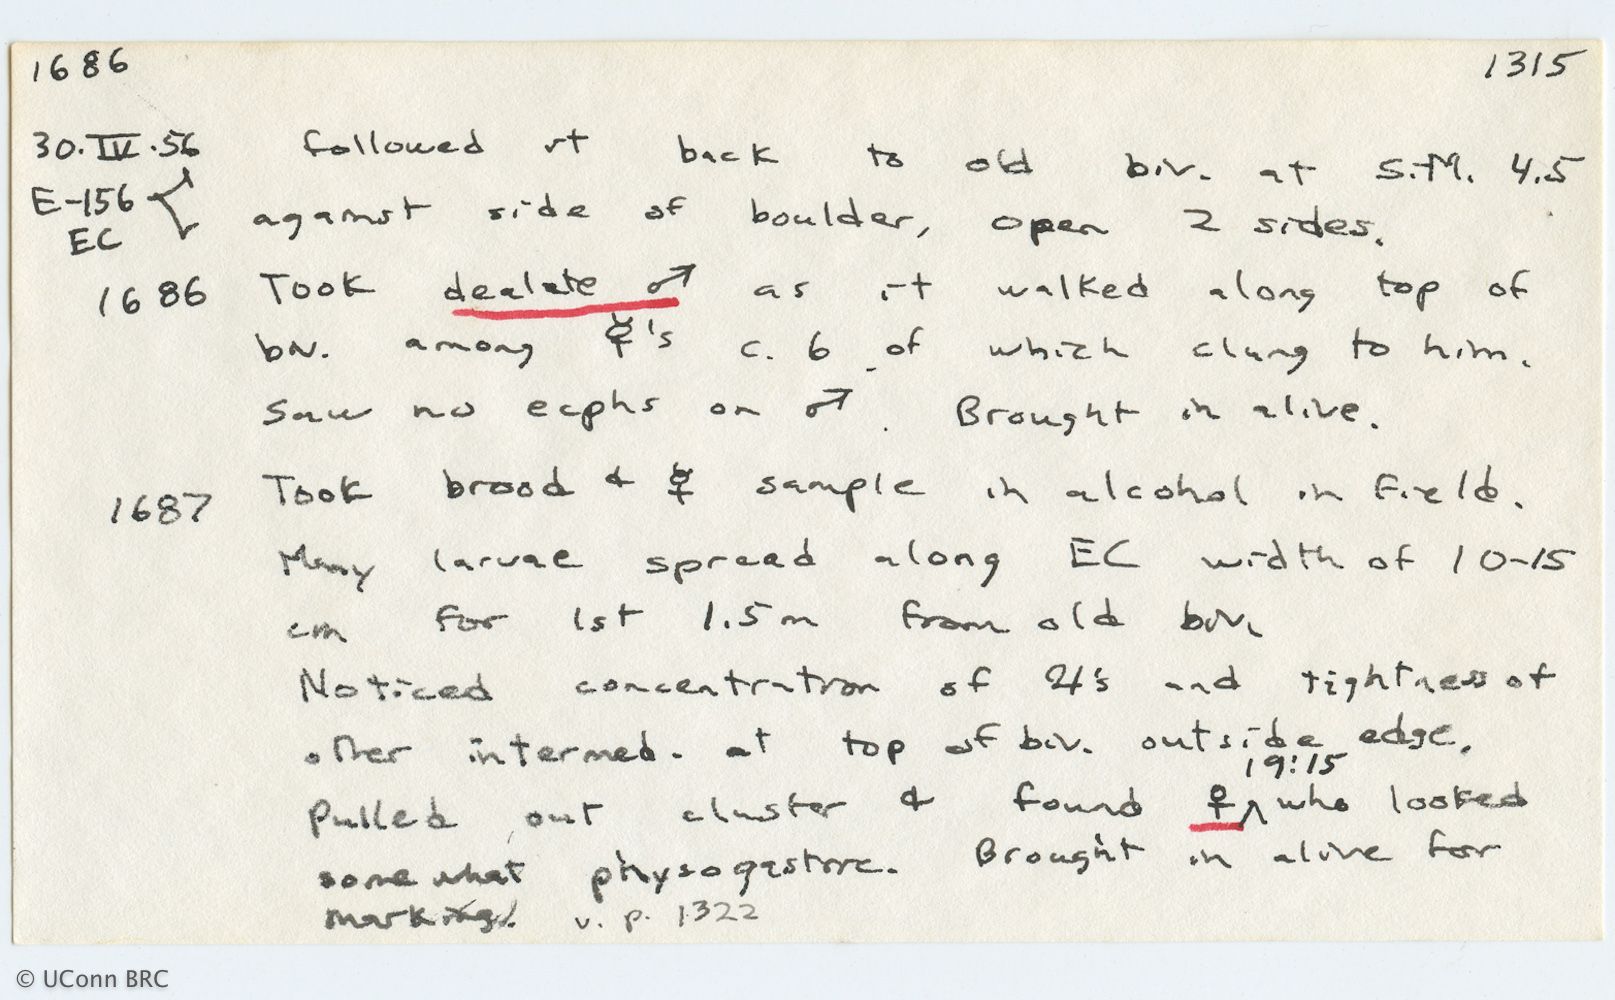 1686 1315
30.IV.56 followed rt back to old biv. at S.M. 4.5
E-156 against side of boulder, open 2 sides.
EC
1686 Took dealate ♂ as it walked along top of
biv. among ☿'s c. 6 of which clung to him.
Saw no ecphs on ♂. Brought in alive.
1687 Took brood & ☿ sample in alcohol in field.
Many larvae spread along EC width of 10-15
cm for 1st 1.5m from old biv.
Noticed concentration of 4's and tightness of
other intermed. at top of biv. outside edge.
19:15
Pulled out cluster & found ♀ ^ who looked
somewhat physogastric. Brought in alive for
marking. v. p. 1322
© UConn BRC